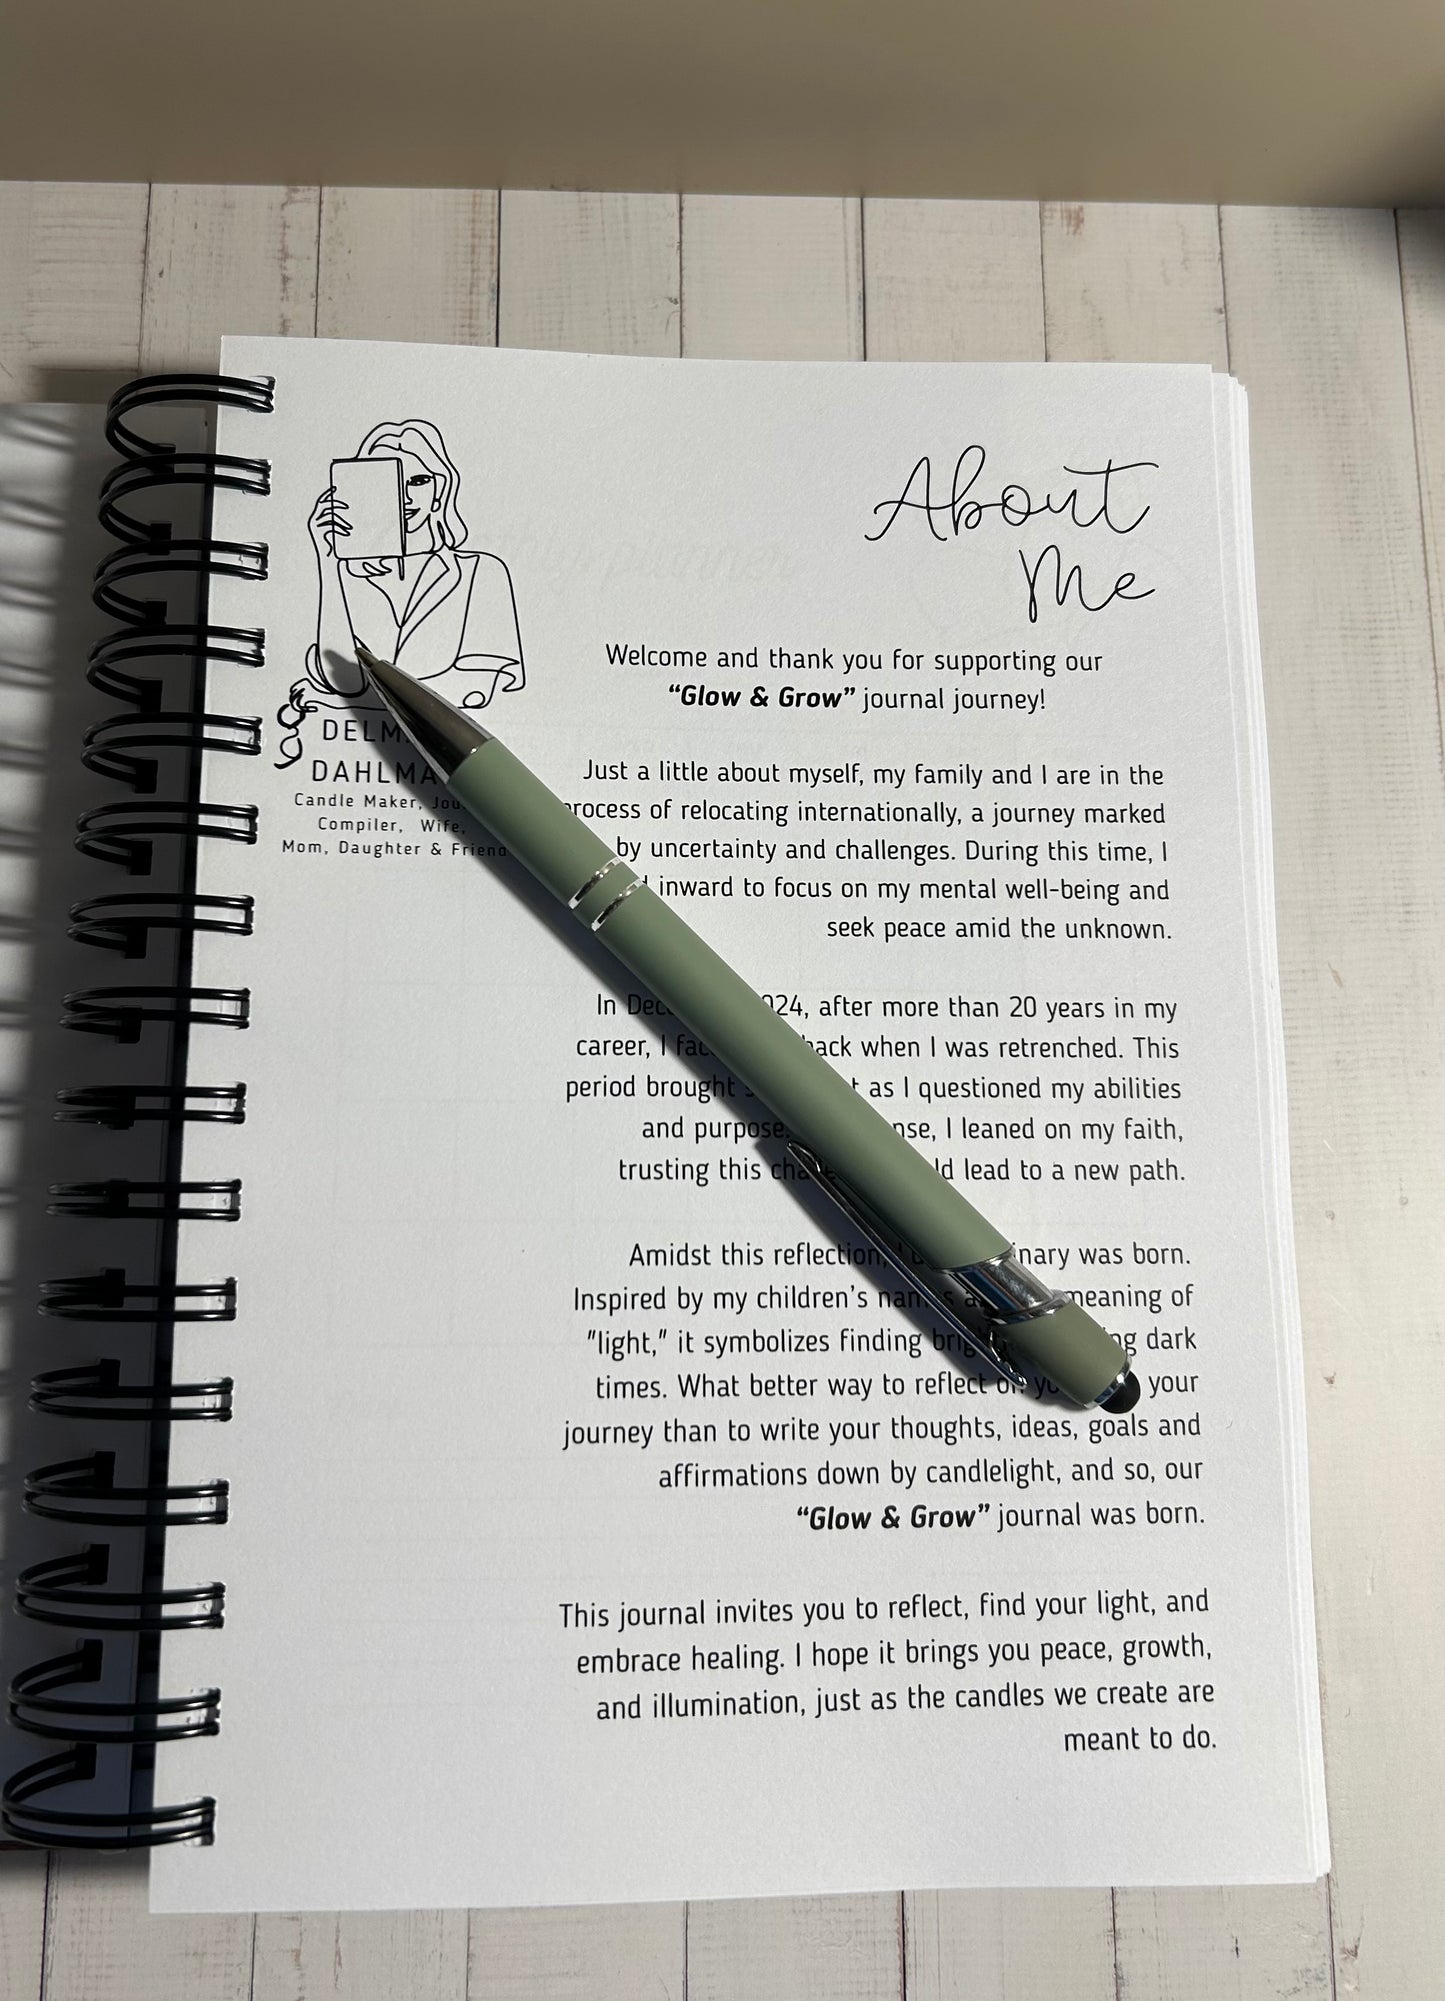 About
Me
Welcome and thank you for supporting our
“Glow & Grow” journal journey!
DAHLMA
Candle Maker,
Compiler, Wife,
Mom, Daughter & Friend
Just a little about myself, my family and I are in the
process of relocating internationally, a journey marked
by uncertainty and challenges. During this time, I
inward to focus on my mental well-being and
seek peace amid the unknown.
In 2024, after more than 20 years in my
career, I when I was retrenched. This
period brought as I questioned my abilities
and purpose. I leaned on my faith,
trusting this lead to a new path.
Amidst this reflection, was born.
Inspired by my children’s names meaning of
"light," it symbolizes finding dark
times. What better way to reflect on your
journey than to write your thoughts, ideas, goals and
affirmations down by candlelight, and so, our
“Glow & Grow” journal was born.
This journal invites you to reflect, find your light, and
embrace healing. I hope it brings you peace, growth,
and illumination, just as the candles we create are
meant to do.